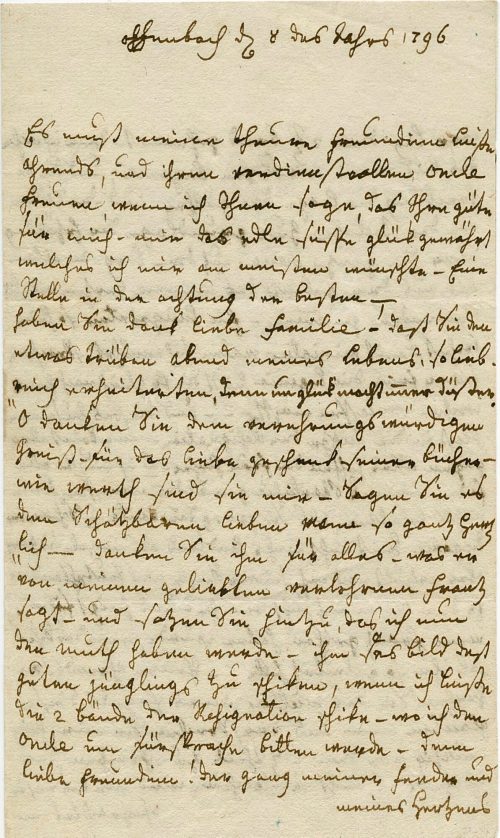 offenbach d 8 das Jahrs 1796
Es muß meine theure freundinn Luise
Ahrends, und ihren verdienstvollen onele
freuen wenn ich Ihnen sage, das Ihre güte
für mich - mir das edle süsse glük gewährt
welches ich mir am meisten wünschte - Eine
Stelle in der achtung der besten -
haben Sie dank liebe familie - daß Sie den
etwas trüben abend meines lebens, so lieb-
reich erheiterten, denn unglük macht immer düster.
O danken Sie dem verehrungs würdigen
Greiß für das liebe geschenk seiner bücher -
wie werth sind sie mir - Sagen Sie es
dem Schätzbaren lieben so gantz hertz
lich - danken Sie ihm für alles - was er
von meinem geliebten verlohrnen frantz
sagt - und setzen Sie hintzu das ich nun
den muth haben werde - ihm das bild deß
guten jünglings zu schiken, wenn ich Luise
die 2 bände der Resignation schike - wo ich den
Onele um fürsprache bitten werde - denn
liebe freundinn! der gang meiner feeder und
meines Hertzens